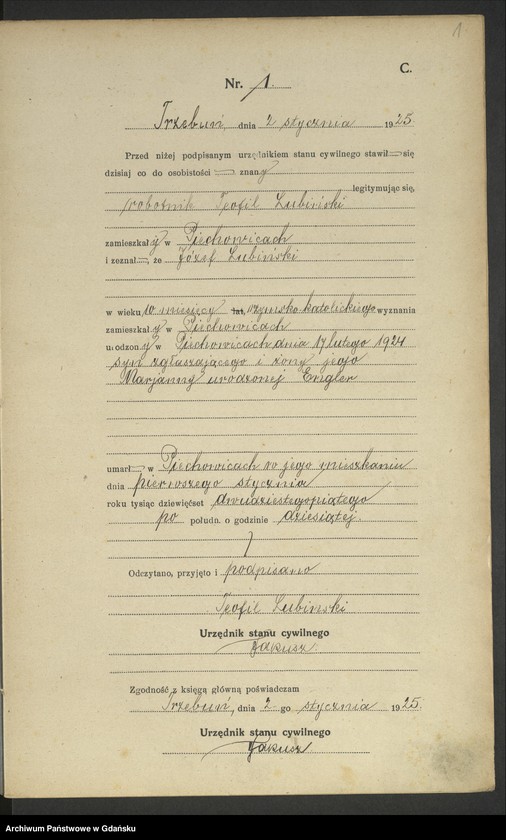 1
C.
Nr. 1.
Trzebuń, dnia 2 stycznia 1925.
Przed niżej podpisanym urzędnikiem stanu cywilnego stawił się
dzisiaj co do osobistości — znany
legitymując się,
robotnik Teofil Lubiński
zamieszkały w Piechowicach
i zeznał, że Józef Lubiński
w wieku 10 miesięcy lat, rzymsko-katolickiego wyznania
zamieszkały w Piechowicach
urodzony w Piechowicach dnia 14 lutego 1924
syn zgłaszającego i żony jego
Marjanny urodzonej Engler
umarł w Piechowicach w jego mieszkaniu
dnia pierwszego stycznia
roku tysiąc dziewięćset dwudziestegopiątego
po połudn. o godzinie dziesiątej.
Odczytano, przyjęto i podpisano
Teofil Lubinski
Urzędnik stanu cywilnego
Jakusz.
Zgodność z księgą główną poświadczam
Trzebuń, dnia 2 go stycznia 1925.
Urzędnik stanu cywilnego
Jakusz
Archiwum Państwowe w Gdańsku